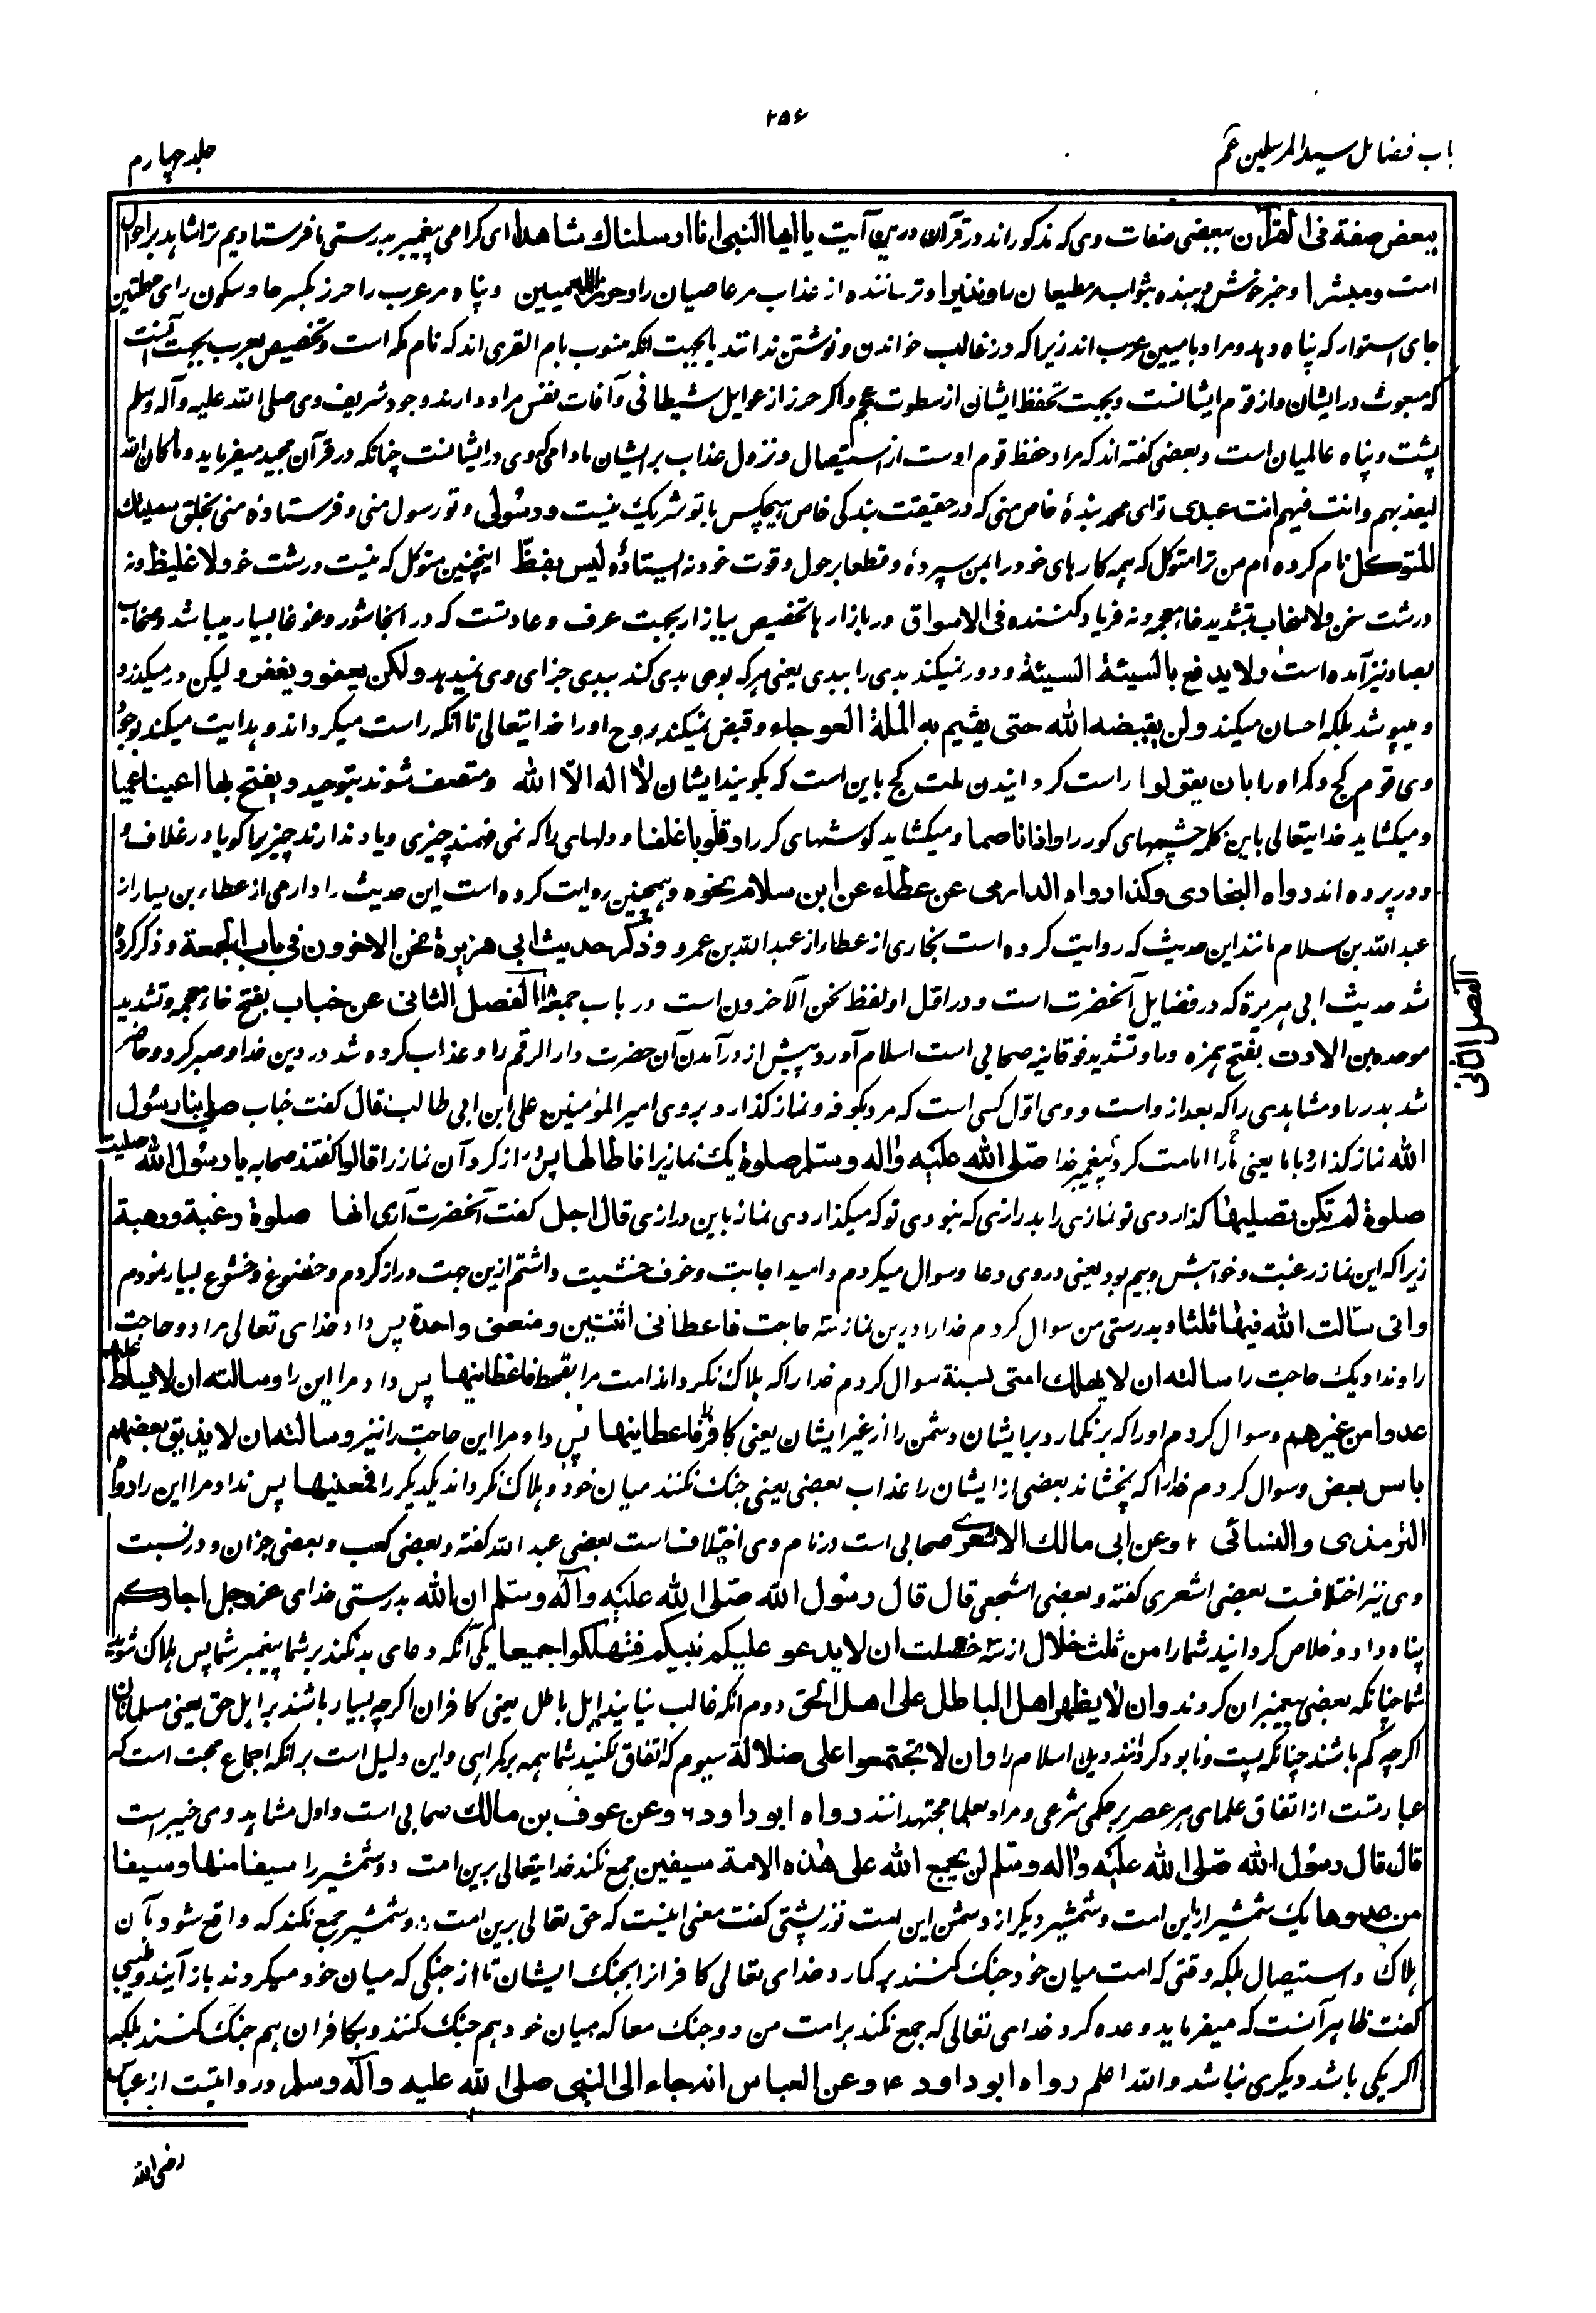 ۲۵۶
باب فضائل سید المرسلین عم
جلد چهارم
ببعض صفة فی القرآن ببعضی صفات وی که مذکور اند در قرآن درین آیت یا ایها النبی انا ارسلناک شاهدا ای گرامی پیغمبر بدرستی ما فرستادیم ترا شاهد بر احوال
امت و مبشرا و خبر خوش دهنده بثواب مر مطیعان را و نذیرا و ترساننده از عذاب مر عاصیان را و حرزا للامیین و پناه مر عرب را حرز بکسر حا و سکون رای مهملتین
جای استوار که پناه دهد و مراد بامیین عرب اند زیرا که در غالب خواندن و نوشتن ندانند یا بجهت آنکه منسوب بام القری اند که نام مکه است و تخصیص بعرب بجهت آنست
که مبعوث در ایشان و از قوم ایشانست و بجهت تحفظ ایشان از سطوت عجم و اگر حرز از غوایل شیطانی و آفات نفس مراد دارند وجود شریف وی صلی الله علیه و آله وسلم
پشت و پناه عالمیان است و بعضی گفته اند که مراد حفظ قوم اوست از استیصال و نزول عذاب بر ایشان مادامی که وی در ایشانست چنانکه در قرآن مجید میفرماید و ما کان الله
لیعذبهم و انت فیهم انت عبدی تو ای محمد بندهٔ خاص منی که در حقیقت بندگی خاص هیچکس با تو شریک نیست و رسولی و تو رسول منی و فرستادهٔ منی بخلق سمیتک
المتوکل نام کرده ام من ترا متوکل که همه کارهای خود را بمن سپردهٔ و قطعا بر حول و قوت خود نه ایستادهٔ لیس بفظ اینچنین متوکل که نیست درشت خو و لا غلیظ و نه
درشت سخن و لا سخاب بتشدید خاء معجمه و نه فریاد کننده فی الاسواق در بازارها تخصیص ببازار بجهت عرف و عادتست که در انجا شور و غوغا بسیار میباشد و صخاب
بصاد نیز آمده است و لا یدفع بالسیئة السیئة و دور نمیکند بدی را ببدی یعنی هر که بوی بدی کند ببدی جزای وی نمیدهد و لکن یعفو و یغفر و لیکن در میگذرد
و میپوشد بلکه احسان میکند و لن یقبضه الله حتی یقیم به الملة العوجاء و قبض نمیکند روح او را خدایتعالی تا آنکه راست میگرداند و هدایت میکند بوجود
وی قوم کج و گمراه را بان یقولوا راست گردانیدن ملت کج باین است که بگویند ایشان لا اله الا الله و متصف شوند بتوحید و یفتح بها اعینا عمیا
و میکشاید خدایتعالی باین کلمه چشمهای کور را و اذانا صما و میکشاید گوشهای کر را و قلوبا غلفا و دلهای را که نمی فهمند چیزی و یاد ندارند چیزی را گویا در غلاف و
و در پرده اند رواه البخاری و کذا رواه الدارمی عن عطاء عن ابن سلام نحوه و همچنین روایت کرده است این حدیث را دارمی از عطاء بن یسار از
عبد الله بن سلام مانند این حدیث که روایت کرده است بخاری از عطا از عبد الله بن عمرو و ذکر حدیث ابی هریرة نحن الاخرون فی باب الجمعة و ذکر کرده
شد حدیث ابی هریرة که در فضایل آنحضرت است و در اول او لفظ نحن الآخرون است در باب جمعه الفصل الثانی عن خباب بفتح خاء معجمه و تشدید
الفصل الثانی
موحده بن الارت بفتح همزه و را و تشدید فوقانیه صحابی است اسلام آورد پیش از در آمدن آن حضرت دار ارقم را و عذاب کرده شد در دین خدا و صبر کرد و حاضر
شد بدر را و مشاهدی را که بعد از واست و وی اول کسی است که مرد بکوفه و نماز گذارد بروی امیر المؤمنین علی ابن ابی طالب قال گفت خباب صلی بنا رسول
الله نماز گذارد با ما یعنی ما را امامت کرد پیغمبر خدا صلی الله علیه و اله وسلم صلوة یک نمازیرا فاطالها پس دراز کرد آن نماز را قالوا گفتند صحابه یا رسول الله صلیت
صلوة لم تکن تصلیها گذاردی تو نمازی را بدرازی که نبودی تو که میگذاردی نماز باین درازی قال اجل گفت آنحضرت آری انها صلوة رغبة و رهبة
زیرا که این نماز رغبت و خواهش و بیم بود یعنی در وی دعا و سوال میکردم و امید اجابت و خوف خشیت داشتم ازین جهت دراز کردم و خضوع و خشوع بسیار نمودم
و انی سالت الله فیها ثلثا و بدرستی من سوال کردم خدا را درین نماز سه حاجت فاعطانی اثنتین و منعنی واحدة پس داد خدای تعالی مرا دو حاجت
را و نداد یک حاجت را سالته ان لا یهلک امتی بسنة سوال کردم خدا را که هلاک نگرداند امت مرا بقحط فاعطانیها پس داد مرا این را و سالته ان لا یسلط علیهم
عدوا من غیرهم و سوال کردم او را که برنگمارد بر ایشان دشمن را از غیر ایشان یعنی کافر فاعطانیها پس داد مرا این حاجت را نیز و سالته ان لا یذیق بعضهم
باس بعض و سوال کردم خدا را که نچشاند بعضی از ایشان را عذاب بعضی یعنی جنگ نکنند میان خود و هلاک نگردانند یکدیگر را فمنعنیها پس نداد مرا این را رواه
الترمذی و النسائی ۲ و عن ابی مالک الاشعری صحابی است در نام وی اختلاف است بعضی عبد الله گفته و بعضی کعب و بعضی جزان و در نسبت
وی نیز اختلافست بعضی اشعری گفته و بعضی اشجعی قال قال رسول الله صلی الله علیه و آله وسلم ان الله بدرستی خدای عزوجل اجارکم
پناه داد و خلاص گردانید شما را من ثلث خلال از سه خصلت ان لا یدعو علیکم نبیکم فتهلکوا جمیعا یکی آنکه دعای بد نکند بر شما پیغمبر شما پس هلاک شوید
شما چنانکه بعضی پیغمبران کردند و ان لا یظهر اهل الباطل علی اهل الحق دوم آنکه غالب نیایند اهل باطل یعنی کافران اگرچه بسیار باشند بر اهل حق یعنی مسلمانان
اگرچه کم باشند چنانکه پست و نابود گردانند دین اسلام را و ان لا تجتمعوا علی ضلالة سیوم که اتفاق نکنید شما همه بر گمراهی و این دلیل است بر آنکه اجماع حجت است که
عبارتست از اتفاق علمای هر عصر بر حکمی شرعی و مراد بعلما مجتهدانند رواه ابو داود ۶ و عن عوف بن مالک صحابی است و اول مشاهد وی خیبر است
قال قال رسول الله صلی الله علیه و اله وسلم لن یجمع الله علی هذه الامة سیفین جمع نکند خدایتعالی برین امت دو شمشیر را سیفا منها و سیفا
من عدوها یک شمشیر از این امت و شمشیر دیگر از دشمن این امت تورپشتی گفت معنی اینست که حق تعالی برین امت دو شمشیر جمع نکند که واقع شود بآن
هلاک و استیصال بلکه وقتی که امت میان خود جنگ کنند برگمارد خدای تعالی کافر انرا بجنگ ایشان تا از جنگی که میان خود میکردند باز آیند و طیبی
گفت ظاهر آنست که میفرماید وعده کرد خدای تعالی که جمع نکند بر امت من دو جنگ معا که میان خود هم جنگ کنند و بکافران هم جنگ کنند بلکه
اگر یکی باشد دیگری نباشد و الله اعلم رواه ابو داود ۴ و عن العباس انه جاء الی النبی صلی الله علیه و آله وسلم و روایتست از عباس
رضی الله